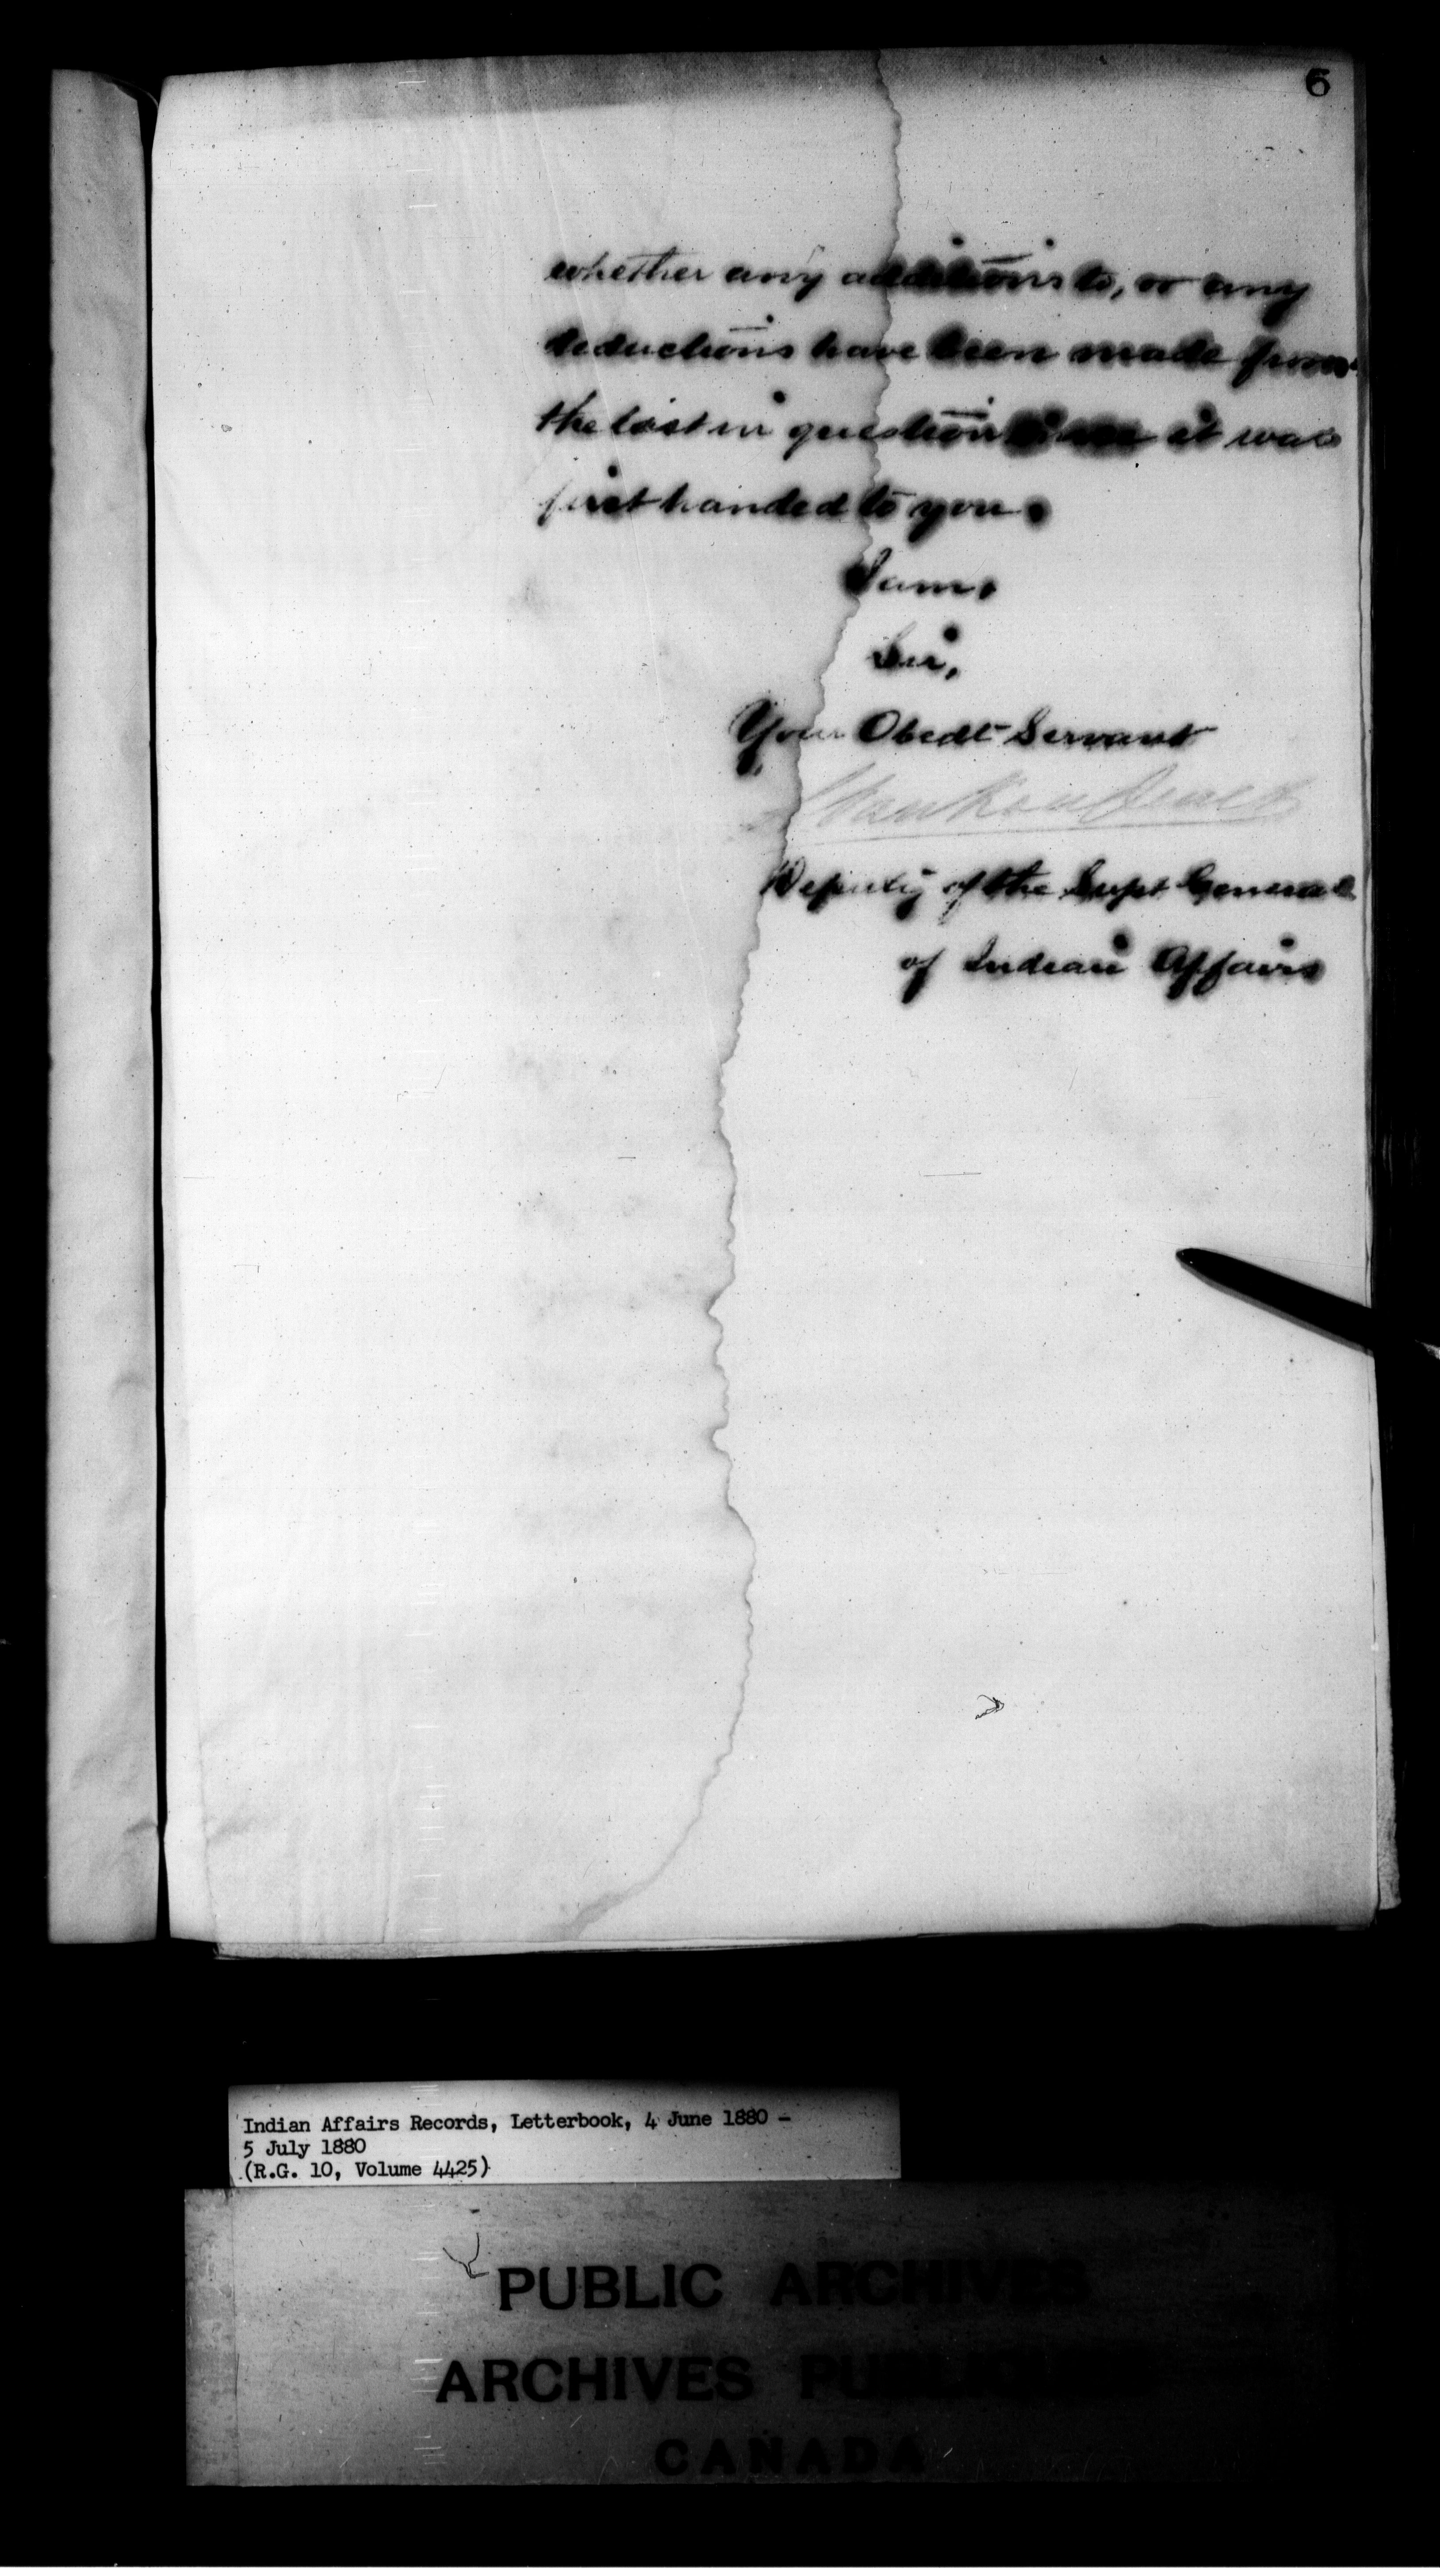 6
whether any additions to, or any
deductions have been made from
the list in question since it was
first handed to you.
I am,
Sir,
Your Obedt Servant
Deputy of the Supt General
of Indian Affairs
Indian Affairs Records, Letterbook, 4 June 1880 –
5 July 1880
(R.G. 10, Volume 4425)
PUBLIC ARCHIVES
ARCHIVES PUBLIQUES
CANADA